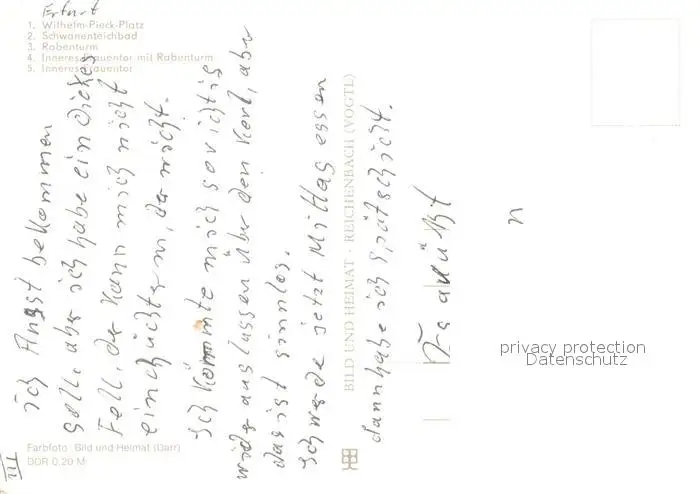 Erfurt
1. Wilhelm-Pieck-Platz
2. Schwanenteichbad
3. Rabenturm
4. Inneres Frauentor mit Rabenturm
5. Inneres Frauentor
ich Angst bekommen
soll, aber ich habe ein dickes
Fell, der kann mich nicht
einschüchtern, der nicht.
Ich könnte mich so richtig
auslassen über den Kerl, aber
das ist sinnlos.
Ich werde jetzt Mittag essen
dann habe ich Spätschicht.
BILD UND HEIMAT · REICHENBACH (VOGTL)
Farbfoto: Bild und Heimat (Darr)
DDR 0,20 M
III
privacy protection
Datenschutz